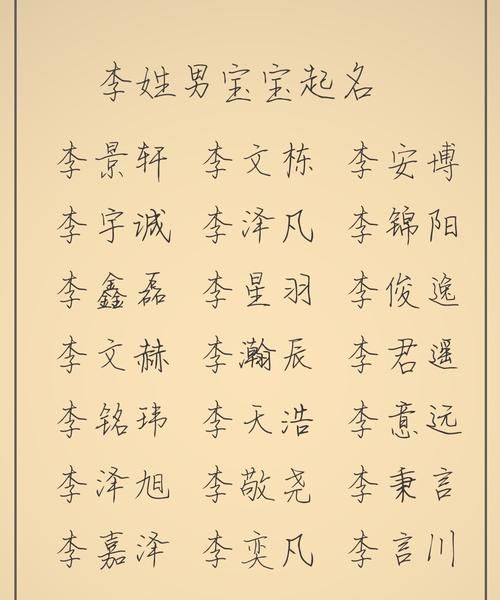 李姓男宝宝起名
李景轩 李文栋 李安博
李宇诚 李泽凡 李锦阳
李鑫磊 李星羽 李俊逸
李文赫 李瀚辰 李君遥
李铭玮 李天浩 李意远
李泽旭 李敬尧 李秉言
李嘉泽 李奕凡 李言川